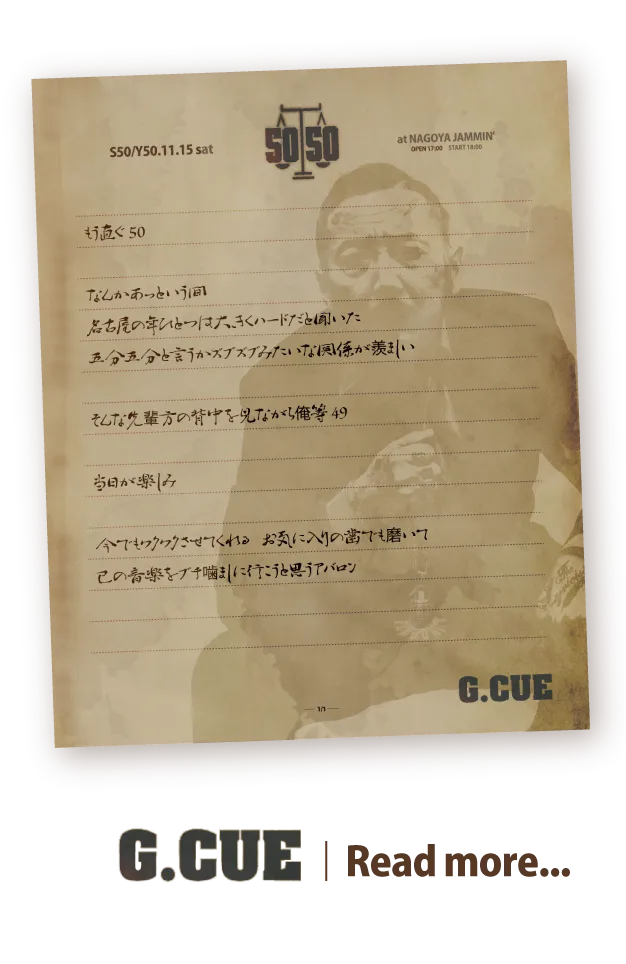 S50/Y50.11.15 sat
50 50
at NAGOYA JAMMIN'
OPEN 17:00 START 18:00
もう直ぐ 50
なんかあっという間
名古屋の年ひとつは大きくハードだと聞いた
五分五分と言うかズブズブみたいな関係が羨ましい
そんな先輩方の背中を見ながら俺等 49
当日が楽しみ
今でもワクワクさせてくれる お気に入りの歯でも磨いて
己の音楽をブチ噛ましに行こうと思うアバロン
G.CUE
1/1
G.CUE | Read more...